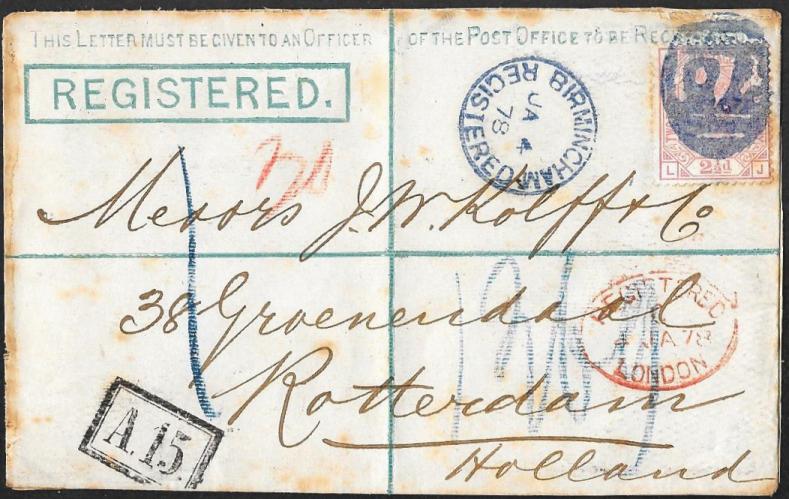 THIS LETTER MUST BE GIVEN TO AN OFFICER OF THE POST OFFICE TO BE
REGISTERED.
BIRMINGHAM REGISTERED
JA 4
78
2½d
L J
Messrs J. W. Kolff & Co
38 Groenendaal
Rotterdam
Holland
REGISTERED
4 JA 78
LONDON
A.15